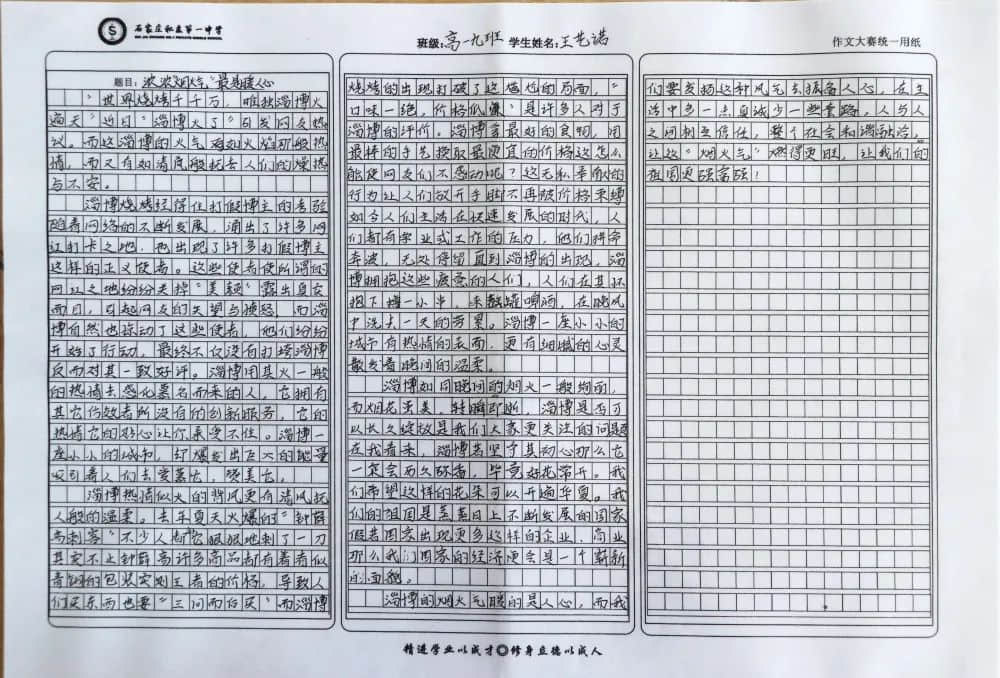 石家庄私立第一中学
班级:高一九班 学生姓名:王艺诺
作文大赛统一用纸
题目:浓浓"烟火气"最是暖人心
"世界烧烤千千万,唯独淄博火
遍天"近日"淄博火了"引发网友热
议。而这淄博的火气 宛如火焰那般热
情,而又有如清风般抚去人们的燥热
与不安。
淄博烧烤经得住打假博主的考验
随着网络的不断发展,涌出了许多网
红打卡之地,也出现了许多打假博主
这样的正义使者。这些使者使所谓的
网红之地纷纷丢掉"美颜"露出真实
面目,引起网友的失望与愤怒,而淄
博自然也惊动了这些使者,他们纷纷
开始了行动,最终不仅没有打垮淄博
反而对其一致好评。淄博用其火一般
的热情去感化慕名而来的人。它拥有
其它仿效者所没有的创新服务,它的
热情它的好心让你承受不住。淄博一
座小小的城市,却爆发出巨大的能量
吸引着人们去爱慕它,赞美它。
淄博热情似火的背风更有清风抚
人般的温柔。去年夏天火爆的"钟薛
高刺客"不少人都它狠狠地刺了一刀
其实不止钟薛高许多商品都有着看似
青铜的包装实则王者的价格,导致人
们买东西也要"三问而后买"而淄博
烧烤的出现打破了这尴尬的局面,"
口味一绝,价格低廉"是许多人对于
淄博的评价。淄博拿最好的食物,用
最棒的手艺换取最便宜的价格这怎么
能使网友们不感动呢?这无私奉献的
行为让人们放开手脚不再被价格束缚
如今人们生活在快速发展的时代,人
们都有学业或工作的压力,他们拼命
奔波,无处停留直到淄博的出现,淄
博拥抱这些疲惫的人们,人们在其怀
抱下撸一小串,来罐啤酒,在晚风
中洗去一天的劳累。淄博一座小小的
城市有热情的表面,更有细腻的心灵
散发着晚间的温柔。
淄博如同晚间的烟火一般绚丽,
而烟花虽美,转瞬即断,淄博是否可
以长久绽放是我们大家更关注的问题
在我看来,淄博若坚守其初心那么它
一定会历久弥香,毕竟好花常开。我
们希望这样的花朵可以开遍华夏。我
们的祖国是蒸蒸日上不断发展的国家
假若国家出现更多这样的企业、商业
那么我们国家的经济便会是一个崭新
的面貌。
淄博的烟火气暖的是人心,而我
们要发扬这种风气去振奋人心,在生
活中多一点真诚少一些套路,人与人
之间相互信任,整个社会和谐融洽,
让这"烟火气"燃得更旺,让我们的
祖国更强富强!
精进学业以成才 修身立德以成人